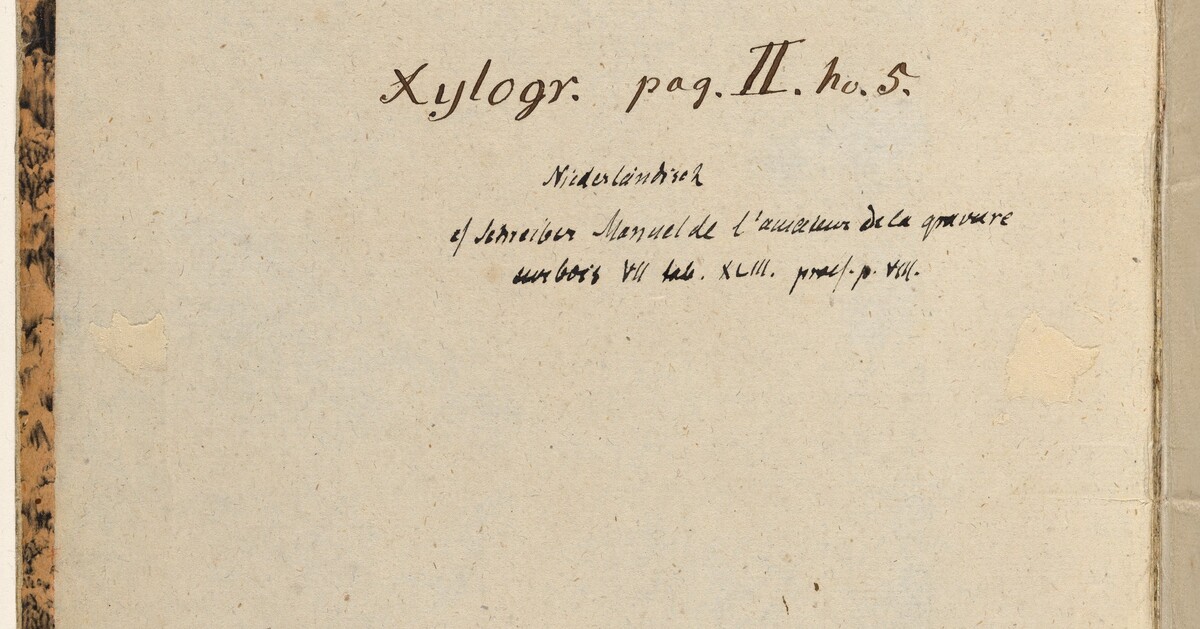 Xylogr. pag. II. no. 5.
Niederländisch
cf Schreiber Manuel de l'amateur de la gravure
sur bois VII tab. XLIII. praef. p. VIII.